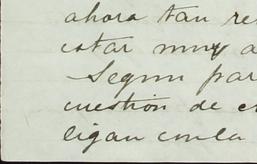 ahora tan re
estar muy a
Segun par
cuestion de e
ligan con la